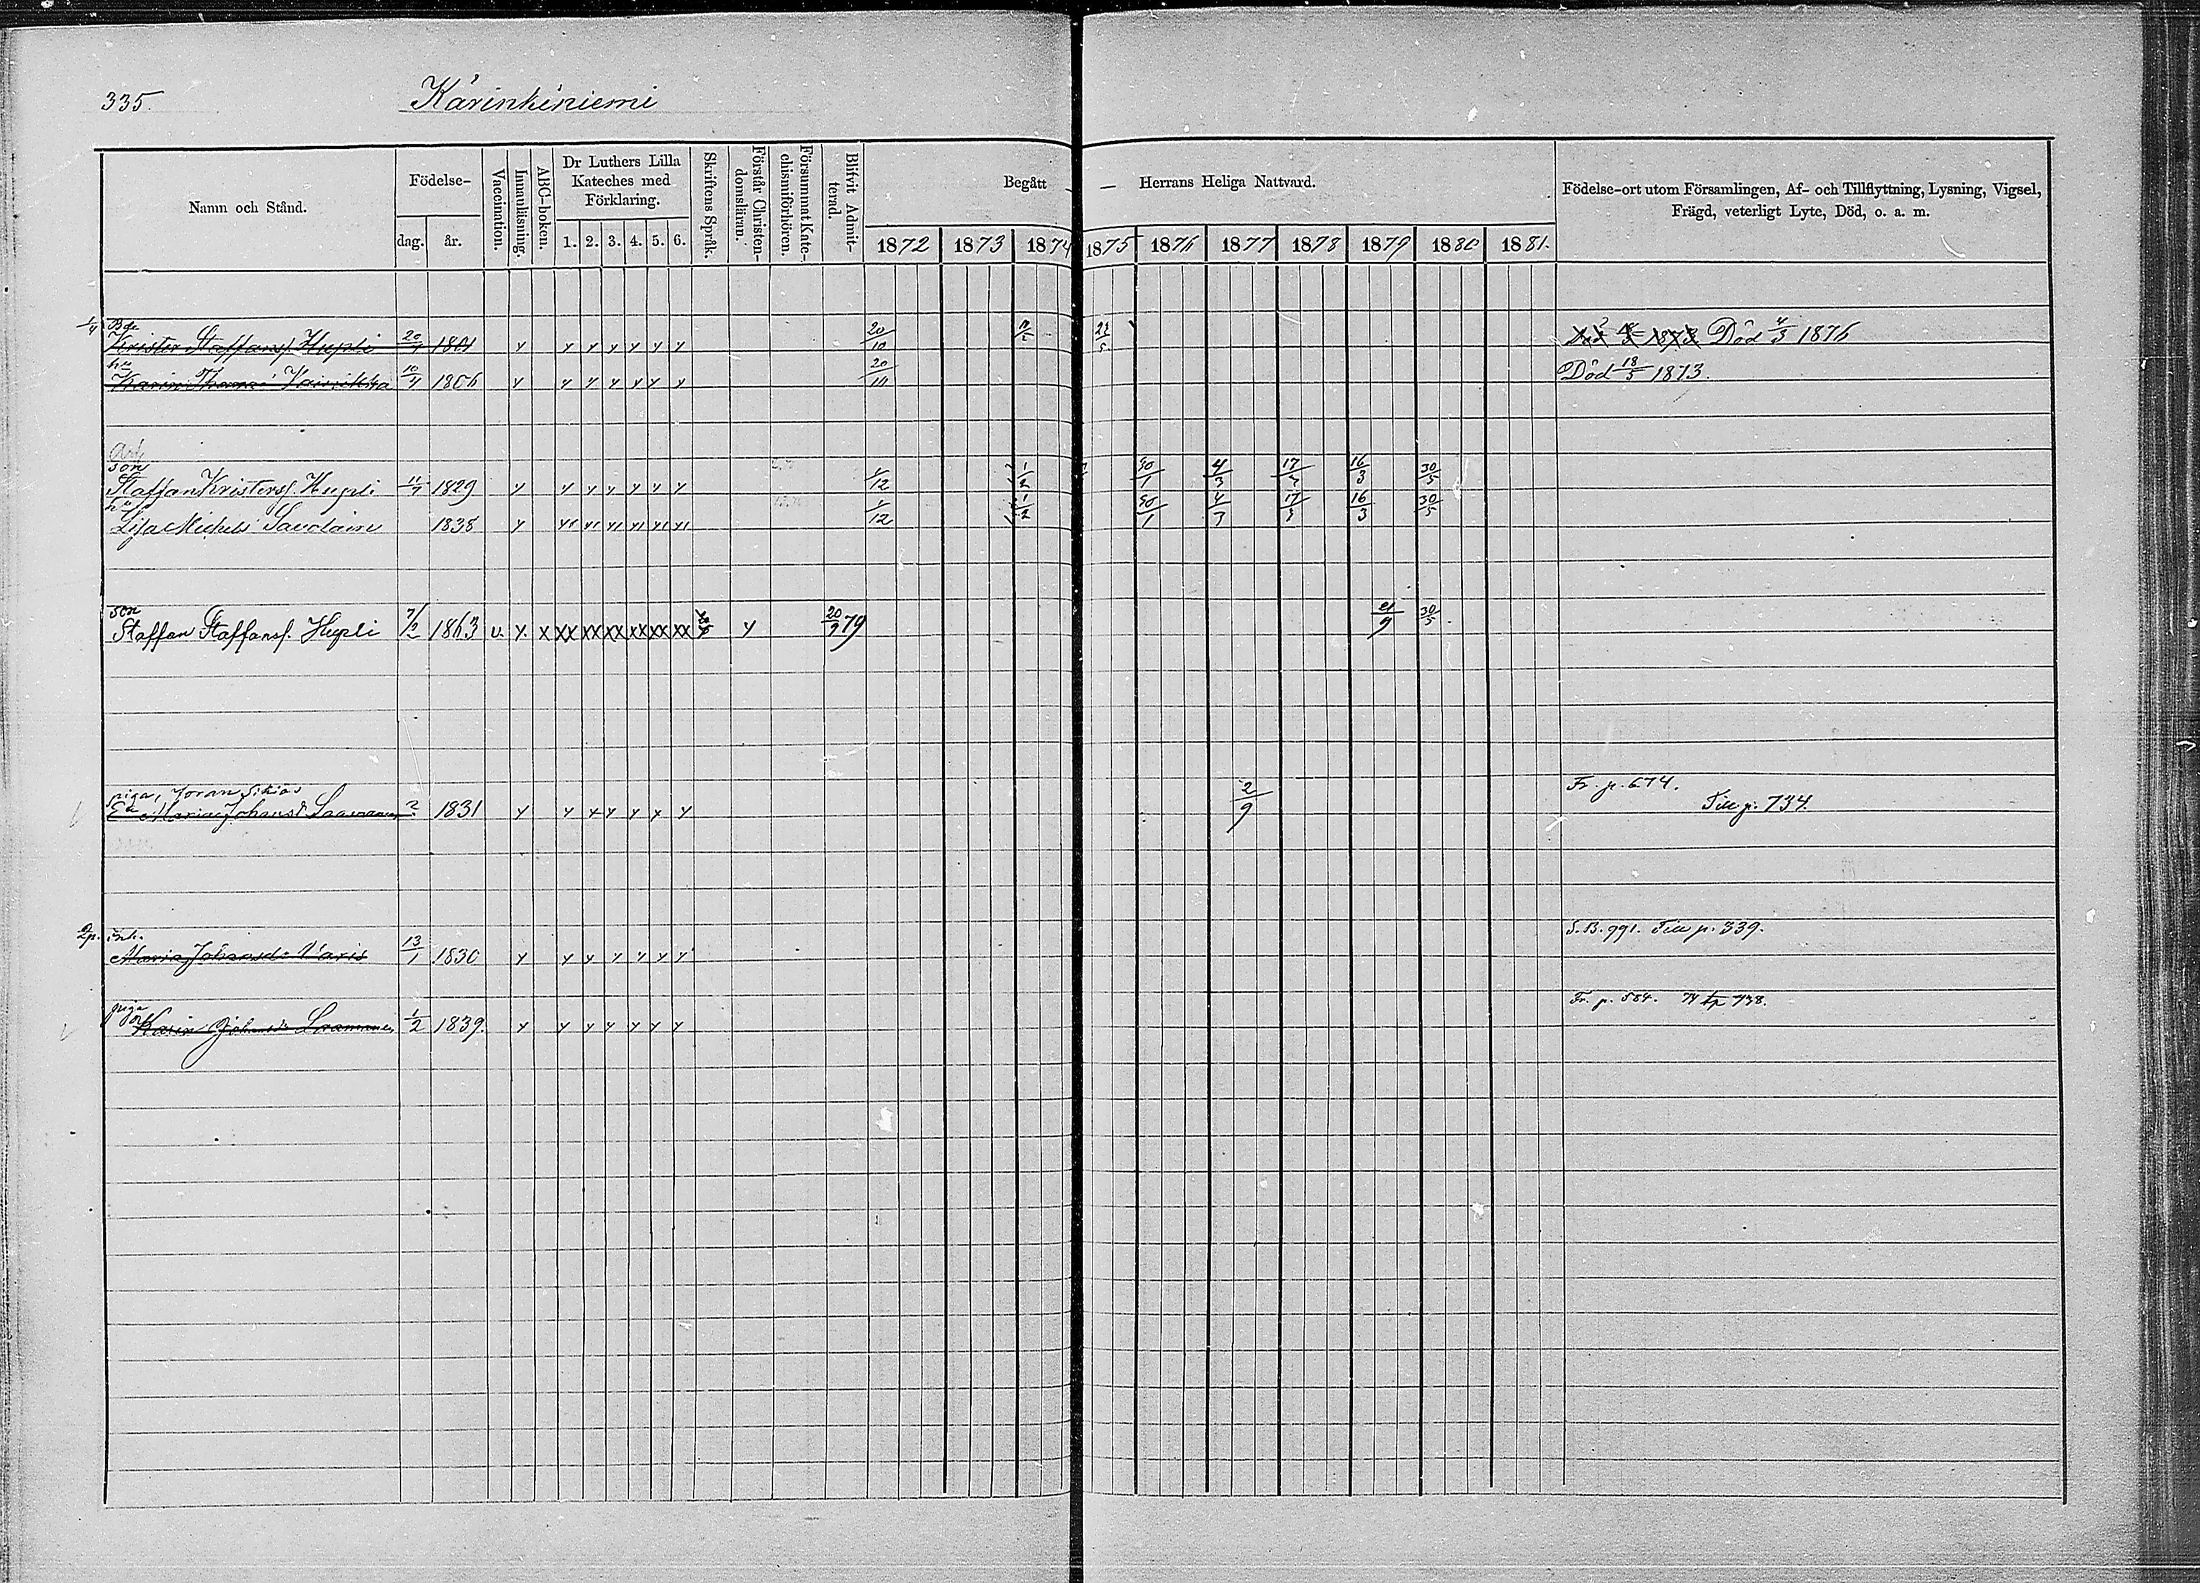 335.
Kärinkiniemi
Namn och Stånd.
Födelse-
dag. år.
Vaccination.
Innanläsning.
ABC-boken.
Dr Luthers Lilla
Kateches med
Förklaring.
1. 2. 3. 4. 5. 6.
Skriftens Språk.
Förstår Christen-
domsläran.
Försummat Kate-
chismiförhören.
Blifvit Admit-
terad.
Begått — — Herrans Heliga Nattvard.
1872 1873 1874 1875 1876 1877 1878 1879 1880 1881.
Födelse-ort utom Församlingen, Af- och Tillflyttning, Lysning, Vigsel,
Frägd, veterligt Lyte, Död, o. a. m.
1/4 Bde
Krister Staffansf. Hupli 1801 y y y y y y y 20/10 Död 4/3 1876
hu
Karin 10/4 1806 y y y y y y y 20/10 Död 18/5 1873.
son
Staffan Kristersf. Hupli 1829 y y y y y y y 1/12 1/2 4/3 17/3 16/3 30/5
hu
Lisa Michels 1838 y 1/12 1/2 4/3 17/3 16/3 30/5
son
Staffan Staffansf. Hupli 7/2 1863 v. y. x xx xx xx xx xx xx y 20/9 79 21/9 30/5
piga, Joran
Maria Johansd. 1831 y y y y y y y 2/9 Fr. p. 674.
Till p. 734.
2p. inh.
Maria Johansd. Varis 13/1 1830 y y y y y y y S.B. 991. Till p. 339.
piga
Karin Johansd. 1/2 1839. y y y y y y y Fr. p. 554. 738.